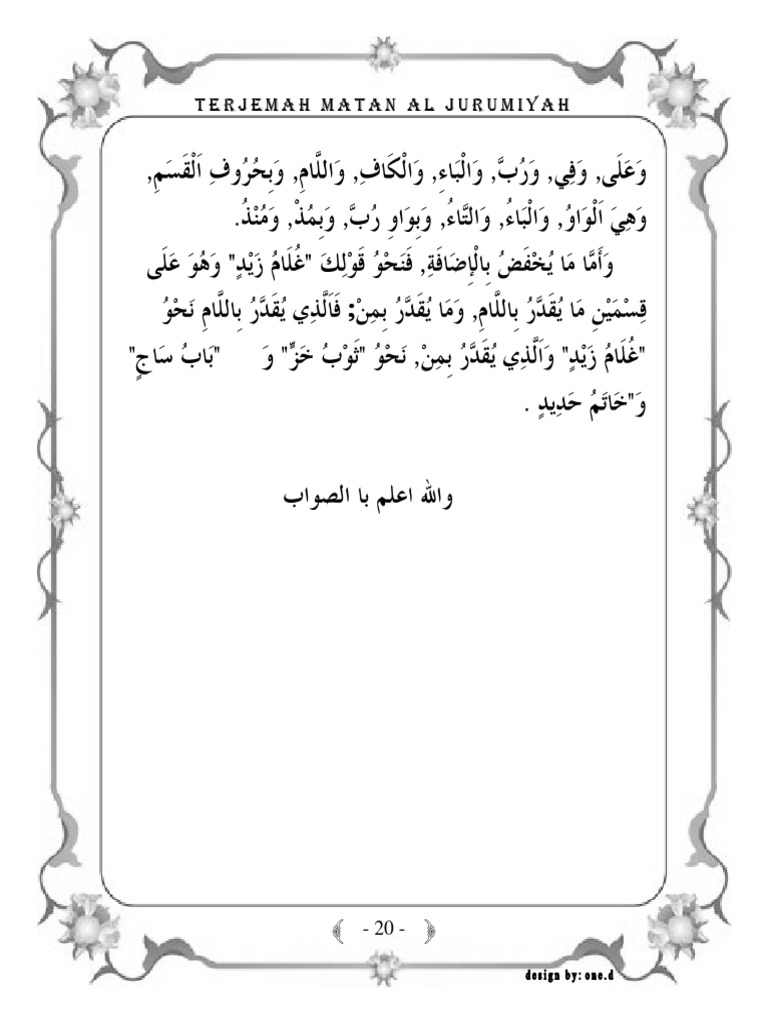 TERJEMAH MATAN AL JURUMIYAH
وَعَلَى, وَفِي, وَرُبَّ, وَالْبَاءِ, وَالْكَافِ, وَاللَّامِ, وَبِحُرُوفِ اَلْقَسَمِ,
وَهِيَ اَلْوَاوُ, وَالْبَاءُ, وَالتَّاءُ, وَبِوَاوِ رُبَّ, وَبِمُذْ, وَمُنْذُ.
وَأَمَّا مَا يُخْفَضُ بِالْإِضَافَةِ, فَنَحْوُ قَوْلِكَ "غُلَامُ زَيْدٍ" وَهُوَ عَلَى
قِسْمَيْنِ مَا يُقَدَّرُ بِاللَّامِ, وَمَا يُقَدَّرُ بِمِنْ; فَاَلَّذِي يُقَدَّرُ بِاللَّامِ نَحْوُ
"غُلَامُ زَيْدٍ" وَاَلَّذِي يُقَدَّرُ بِمِنْ, نَحْوُ "ثَوْبُ خَزٍّ" وَ "بَابُ سَاجٍ"
وَ"خَاتَمُ حَدِيدٍ .
والله اعلم با الصواب
- 20 -
design by: one.d